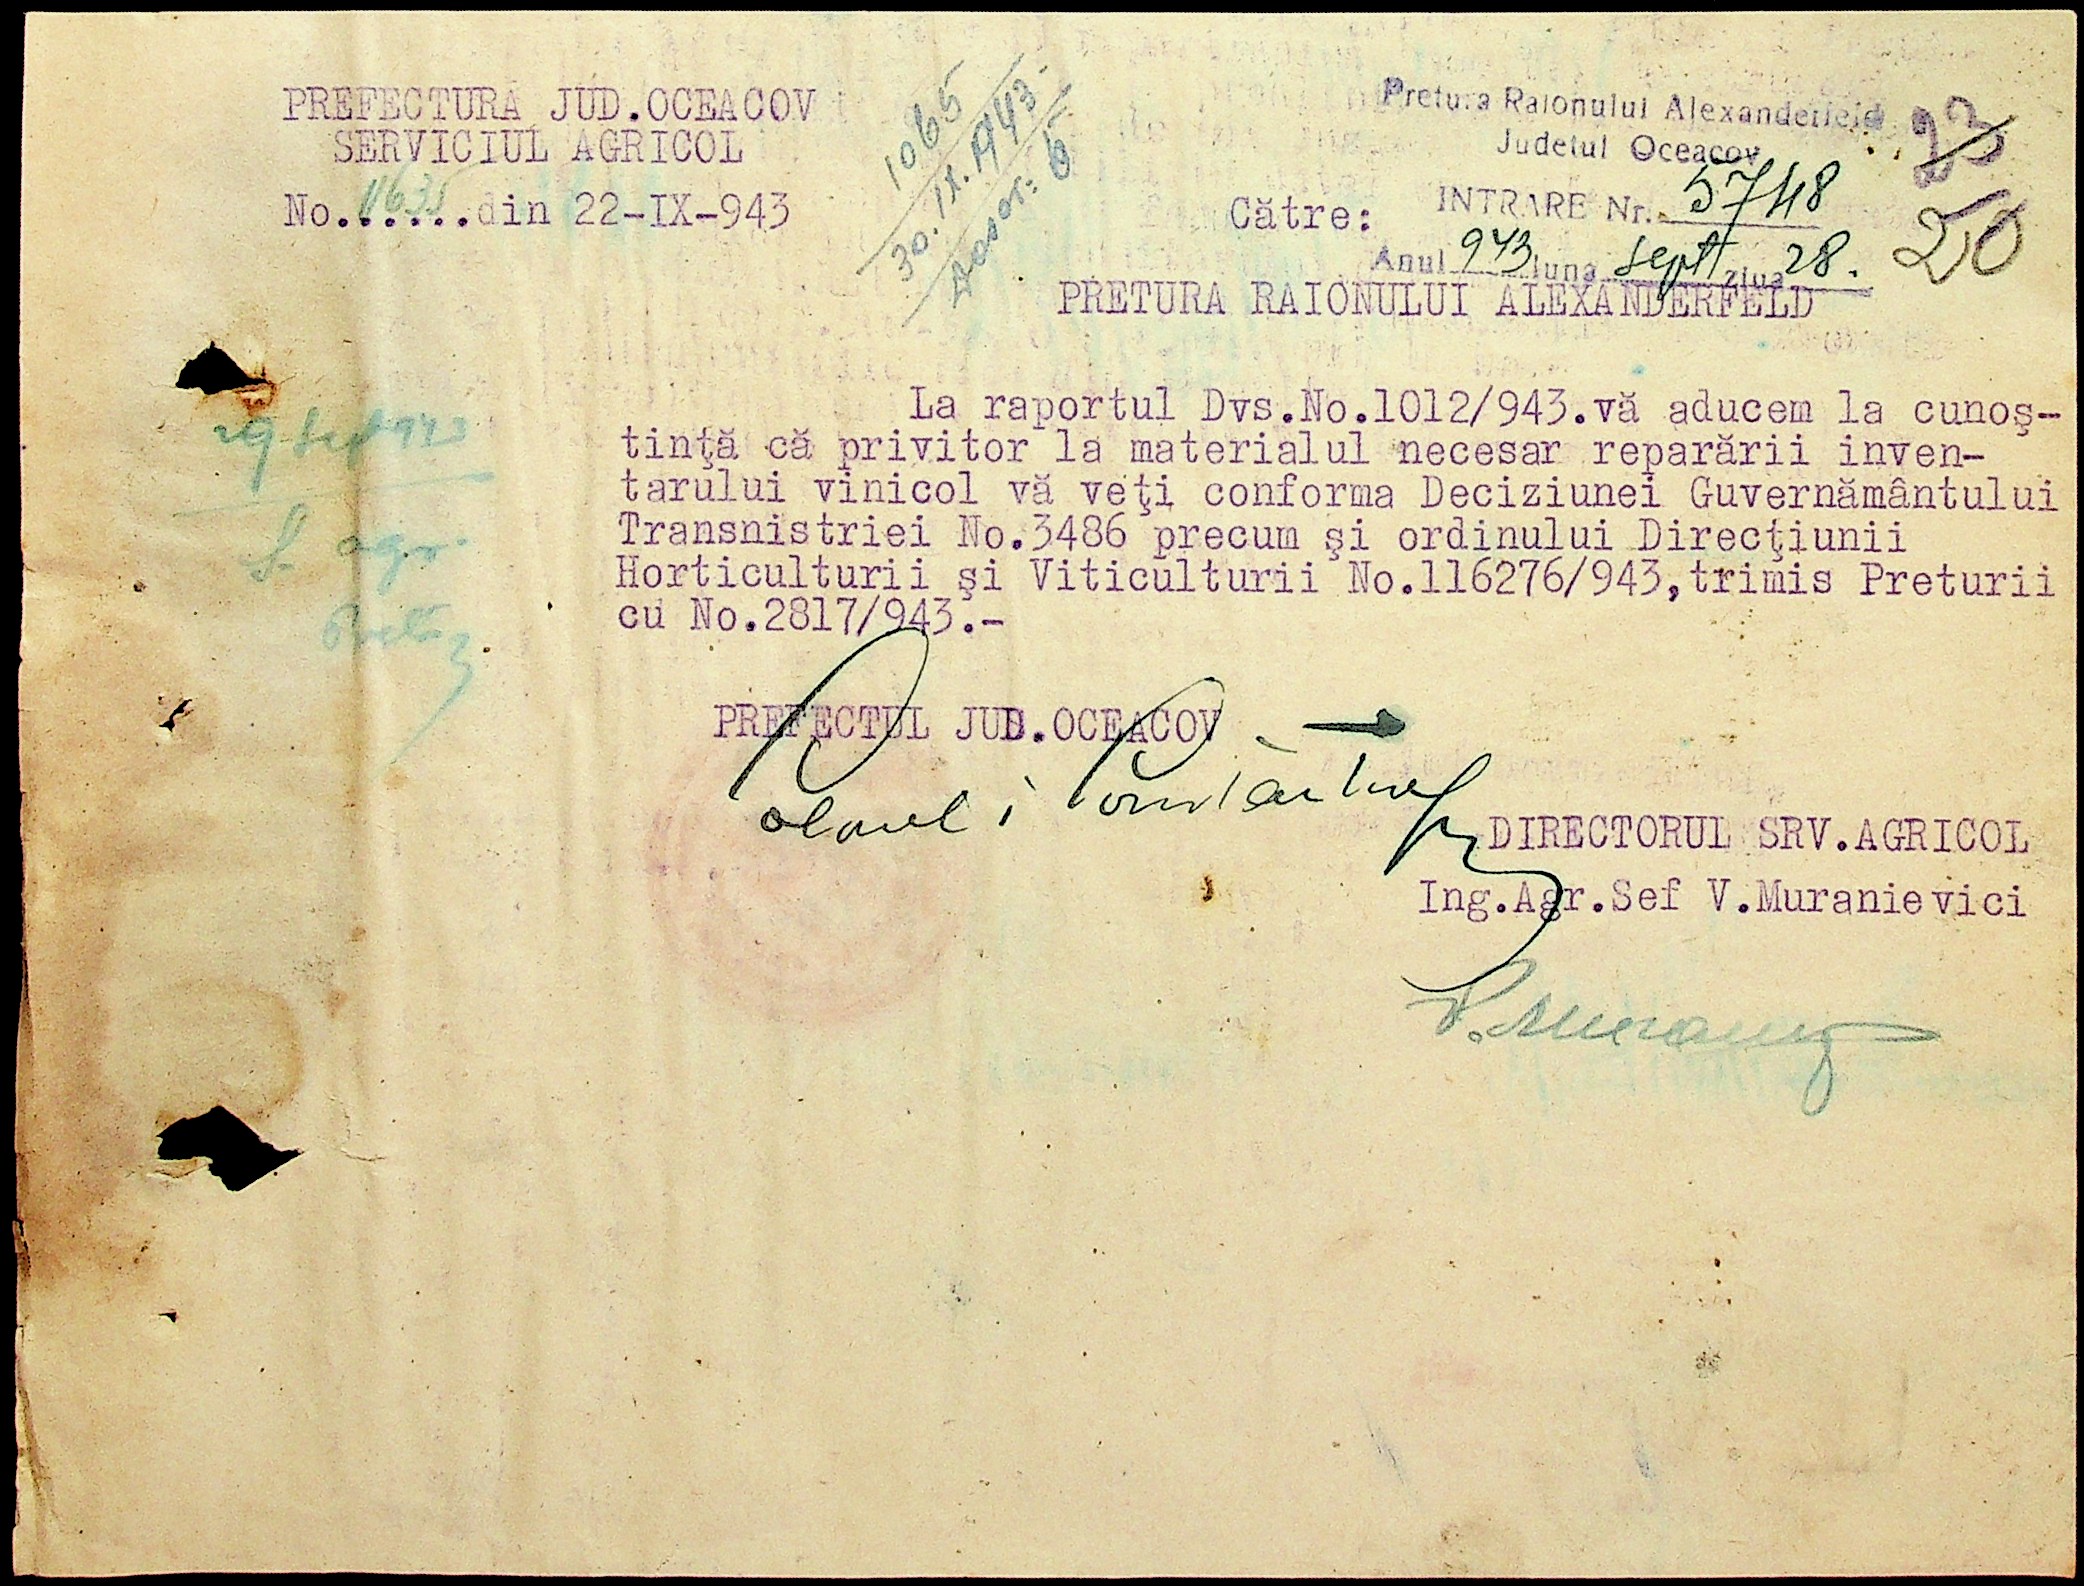 PREFECTURA JUD.OCEACOV
SERVICIUL AGRICOL
No.11635.din 22-IX-943
1065
30.IX.1943.
Dosar: 6
Pretura Raionului Alexanderfeld
Judetul Oceacov
INTRARE Nr. 5748
Anul 943 luna Sept ziua 28.
23
20
Către:
PRETURA RAIONULUI ALEXANDERFELD
29 Sept 943
S. agr.
La raportul Dvs.No.1012/943.vă aducem la cunoş-
tinţă că privitor la materialul necesar reparării inven-
tarului vinicol vă veţi conforma Deciziunei Guvernământului
Transnistriei No.3486 precum şi ordinului Direcţiunii
Horticulturii şi Viticulturii No.116276/943,trimis Preturii
cu No.2817/943.-
PREFECTUL JUD.OCEACOV
Colonel
DIRECTORUL SRV.AGRICOL
Ing.Agr.Sef V.Muranievici